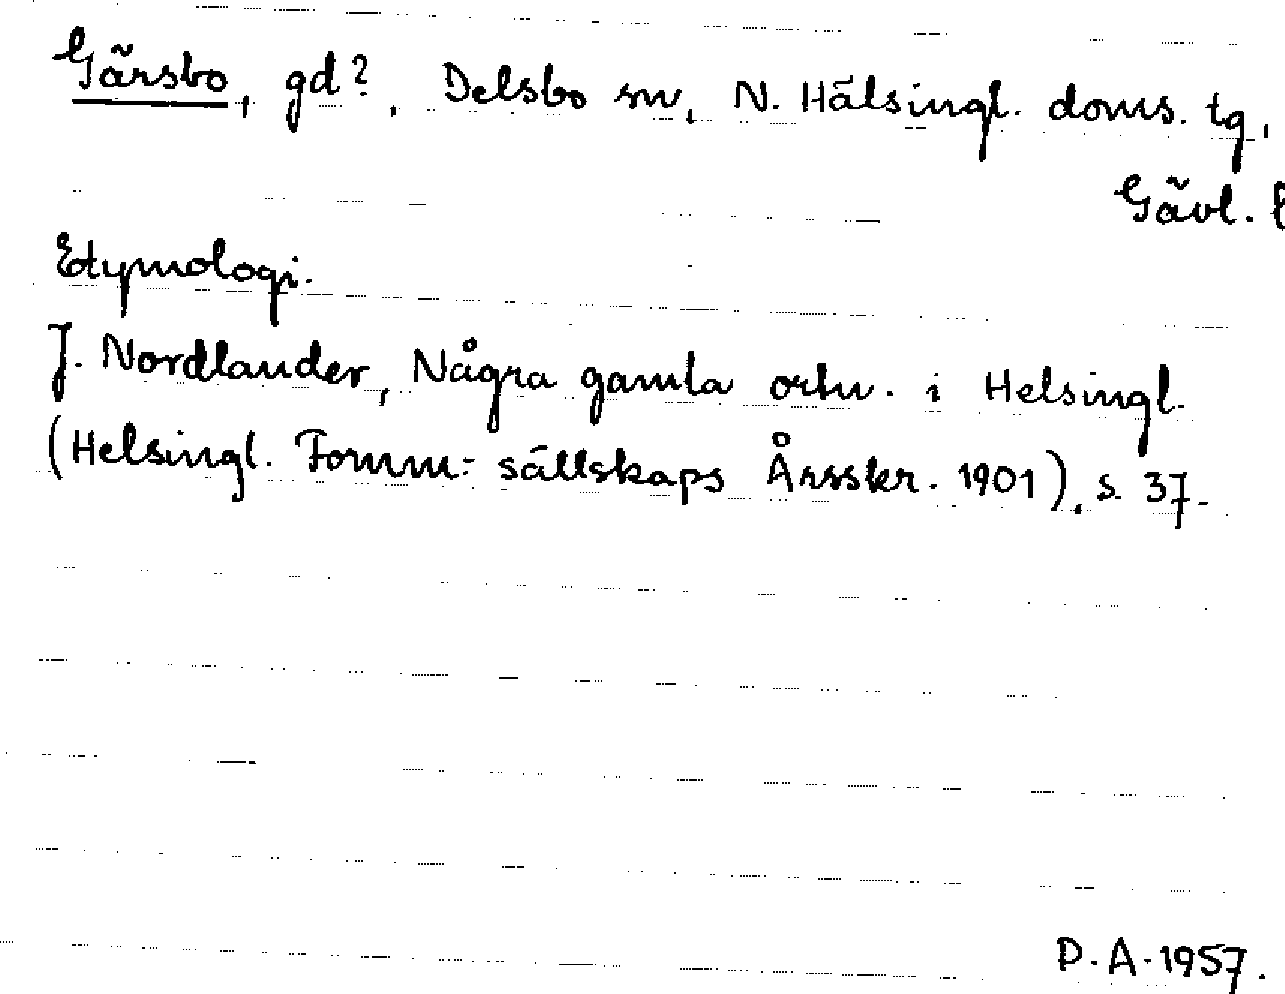 Gärsbo, gd?, Delsbo sn, N. Hälsingl. doms. tg,
Gävl. l
Etymologi.
J. Nordlander, Några gamla ortn. i Helsingl.
(Helsingl. Fornm.-sällskaps Årsskr. 1901), s. 37.
P.A. 1957.